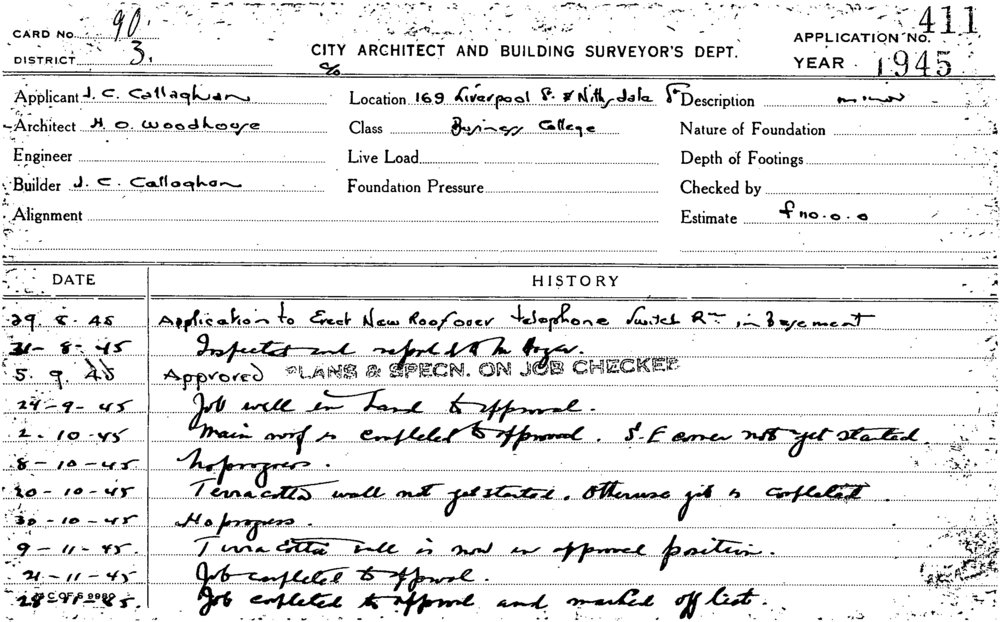 CARD No. 90
DISTRICT 3.
CITY ARCHITECT AND BUILDING SURVEYOR'S DEPT.
APPLICATION No. 411
YEAR 1945
Applicant J. C. Callaghan
Location 169 Liverpool St & Nithsdale St
Description minor
Architect H. O. Woodhouse
Class Business College
Nature of Foundation
Engineer
Live Load
Depth of Footings
Builder J. C. Callaghan
Foundation Pressure
Checked by
Alignment
Estimate
DATE HISTORY
29. 8. 45 Application to Erect New Roof over telephone Switch Rm in Basement
31-8-45 Inspected and
5. 9. 45 Approved PLANS & SPECN. ON JOB CHECKED
24-9-45 Job well in hand to approval.
2-10-45 Main roof is completed to approval. S-E corner not yet started.
8-10-45 No progress.
20-10-45 Terracotta wall not yet started. Otherwise job is completed.
30-10-45 No progress.
9-11-45. Terra Cotta wall is now in approved position.
21-11-45 Job completed to approval.
28-11-45. Job completed to approval and marked off list.